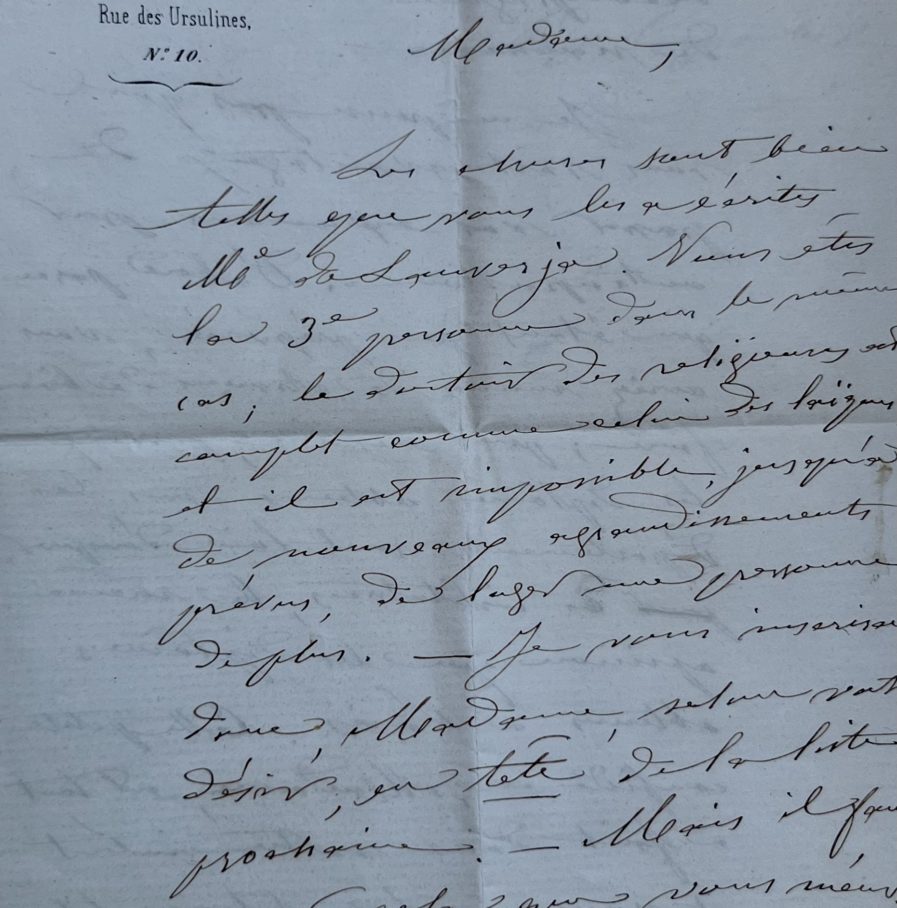 Rue des Ursulines,
N.º 10.
Madame,
Les choses sont bien
telles que vous les a écrites
Me de Louverja. Vous êtes
la 3e personne dans le même
cas; le dortoir des religieuses est
complet comme celui des laïques
et il est impossible, jusqu'à
de nouveaux agrandissements
prévus, de loger une personne
de plus. — Je vous inscrirai
donc, Madame, selon votre
désir, en tête de la liste
prochaine. — Mais il faut
que vous